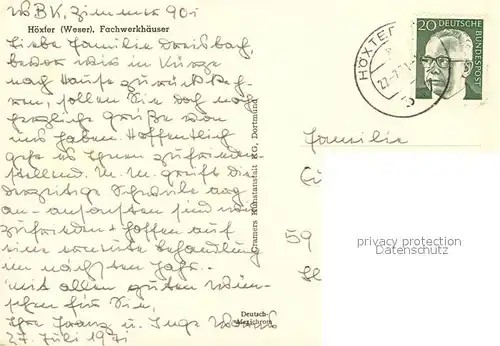 WBK, Zimmer 90i
Höxter (Weser), Fachwerkhäuser
Liebe Familie Dreisbach,
bevor wir in Kürze
nach Hause zurückkeh-
ren, sollen Sie doch noch
herzliche Grüße von
uns haben. Hoffentlich
geht es Ihnen zufrieden-
stellend. M. m. greift die
derzeitige Schwüle arg
an - ansonsten sind wir
zufrieden + hoffen auf
eine erneute Behandlung
im nächsten Jahr.
Mit allen guten Wün-
schen für Sie,
Ihre Franz u. Inge
27. Juli 1971
Cramers Kunstanstalt KG, Dortmund
Deutsch-
Mexichrom
HÖXTER
20 DEUTSCHE
BUNDESPOST
Familie
59
privacy protection
Datenschutz